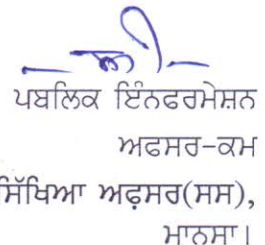 ਪਬਲਿਕ ਇੰਨਫਰਮੇਸ਼ਨ
ਅਫਸਰ-ਕਮ
ਸਿੱਖਿਆ ਅਫ਼ਸਰ(ਸਸ),
ਮਾਨਸਾ।